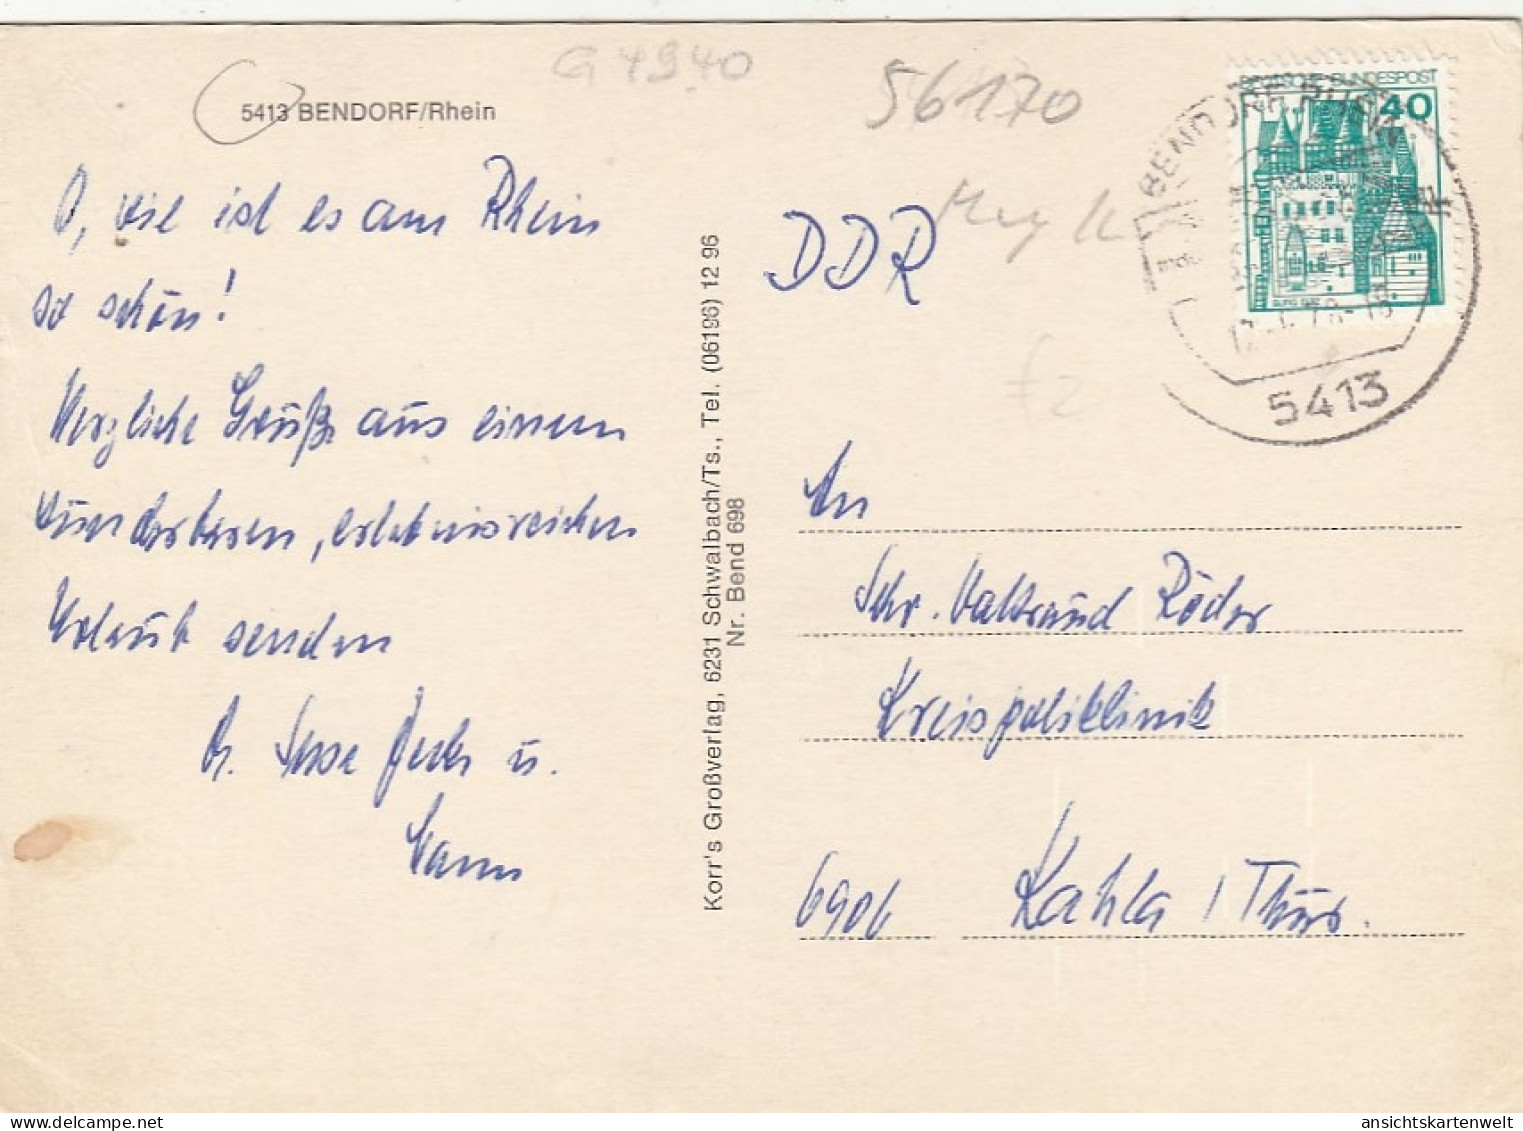 G 4940
56170
5413 BENDORF/Rhein
O, wie ist es am Rhein
so schön!
Herzliche Grüße aus einem
wunderbaren, erlebnisreichen
Urlaub senden
u.
Mann
Korr's Großverlag, 6231 Schwalbach/Ts., Tel. (06196) 12 96
Nr. Bend 698
DEUTSCHE BUNDESPOST
40
BENDORF, RHEIN
5413
DDR
An
Schr. Waltraud Röder
Kreispoliklinik
6906 Kahla / Thür.
ansichtskartenwelt